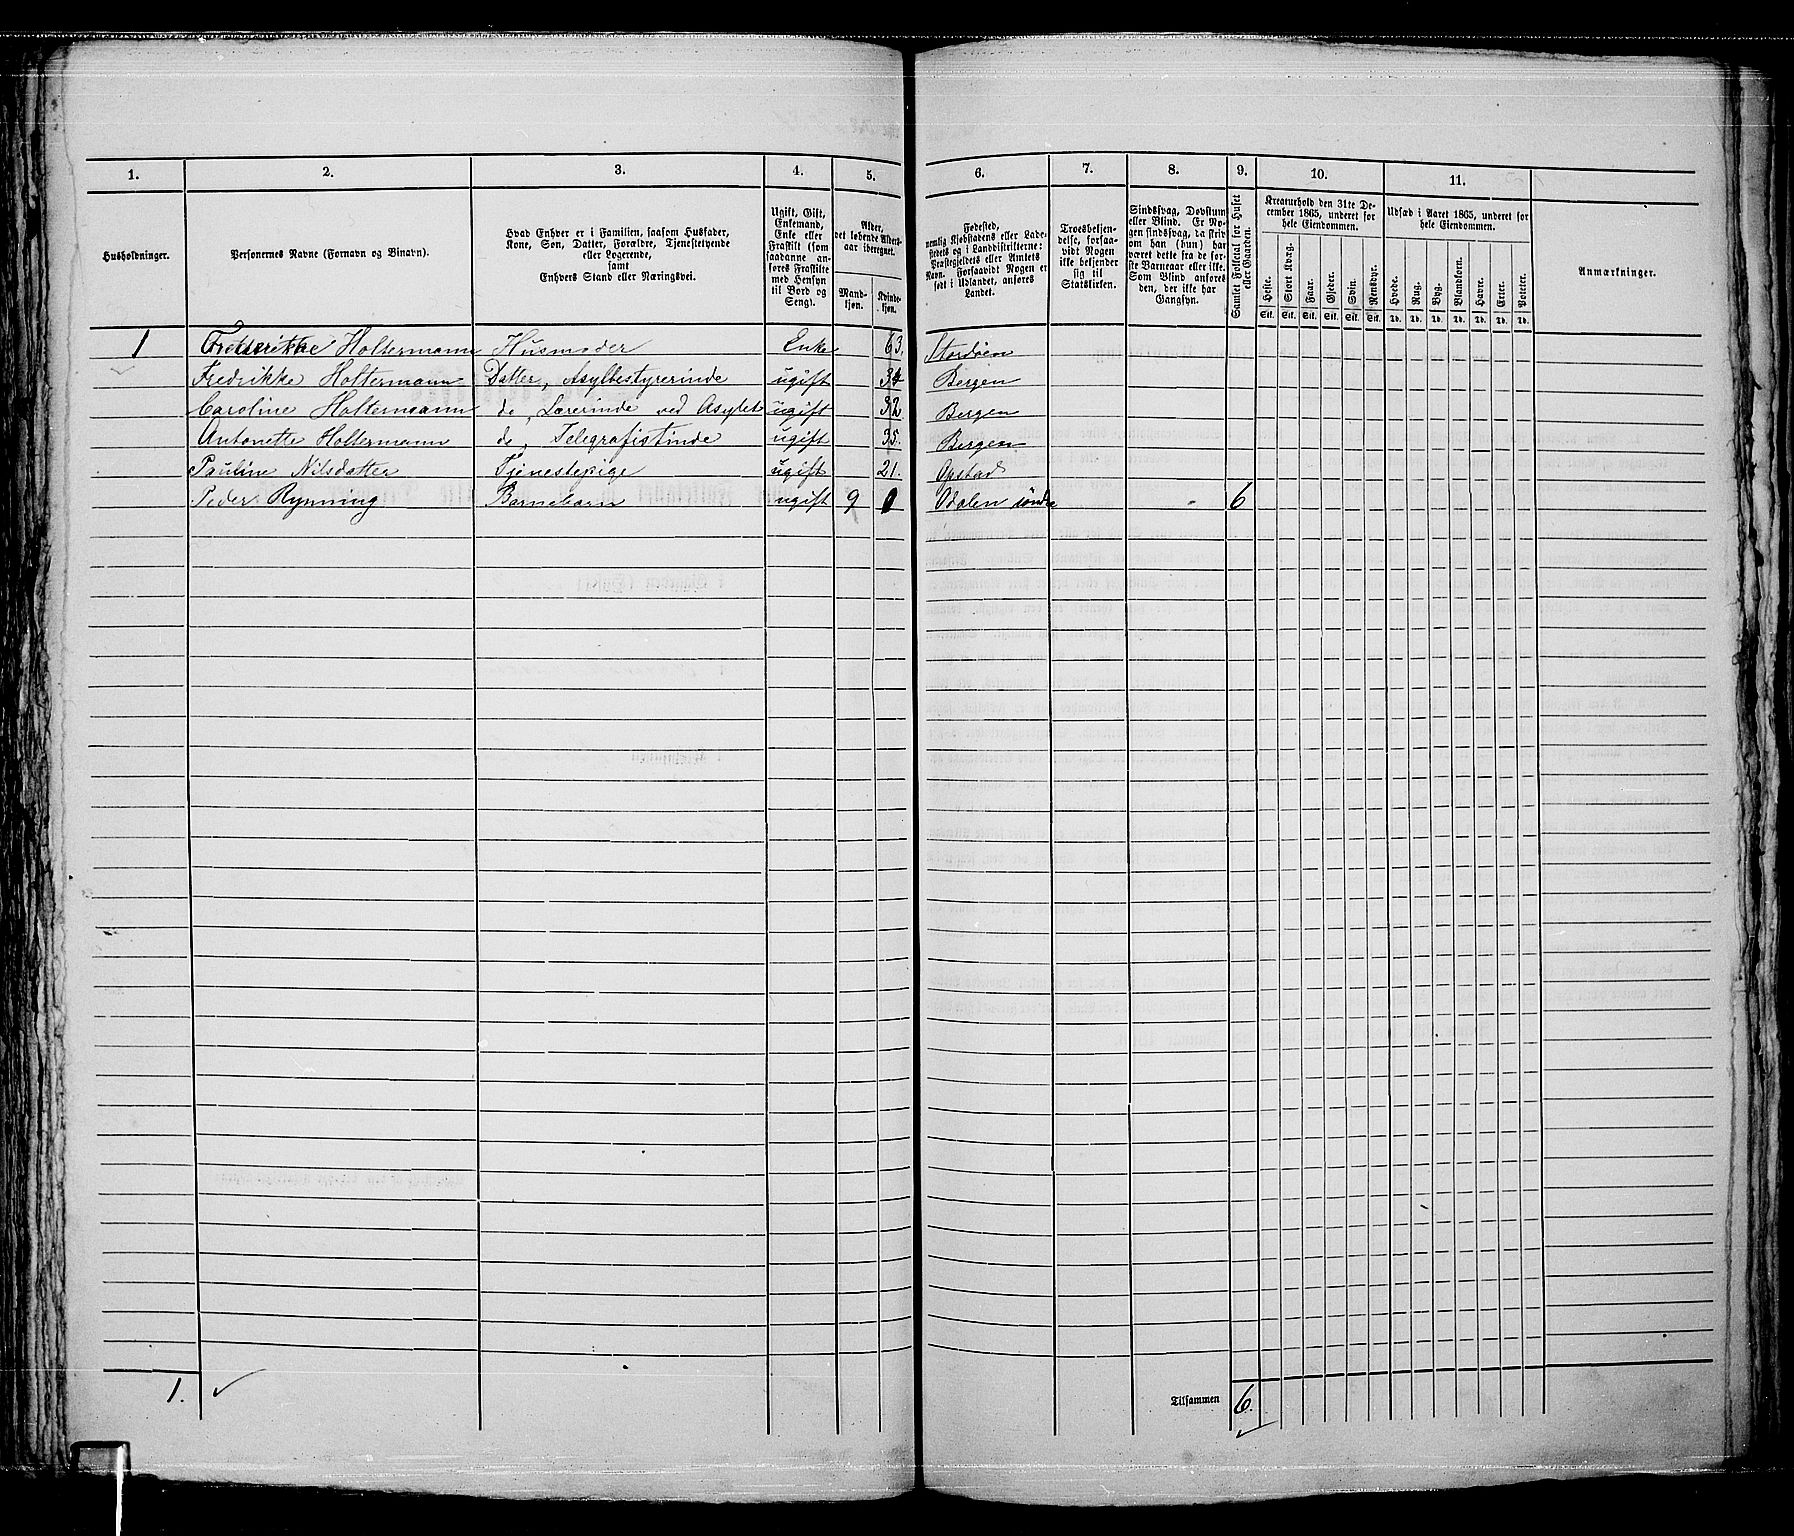 1. 2. 3. 4. 5. 6. 7. 8. 9. 10. 11.
Husholdninger.
Personernes Navne (Fornavn og Binavn).
Hvad Enhver er i Familien, saasom Husfader,
Kone, Søn, Datter, Forældre, Tjenestetyende
eller Logerende,
samt
Enhvers Stand eller Næringsvei.
Ugift, Gift,
Enkemand,
Enke eller
Fraskilt (som
saadanne an-
føres Fraskilte
med Hensyn
til Bord og
Seng).
Alder,
det løbende Alders-
aar iberegnet.
Mand-
kjøn.
Kvinde-
kjøn.
Fødested,
nemlig Kjøbstadens eller Lade-
stedets og i Landdistrikterne:
Præstegjeldets eller Amtets
Navn. Forsaavidt Nogen er
født i Udlandet, anføres
Landet.
Troesbekjen-
delse, forsaa-
vidt Nogen
ikke bekjender
sig til
Statskirken.
Sindssvag, Døvstum
eller Blind. Er No-
gen sindssvag, da skriv
om han (hun) har
været dette fra de før-
ste Barneaar eller ikke.
Som Blind anføres
den, der ikke har
Gangsyn.
Samlet Folketal for Huset
eller Gaarden.
Kreaturhold den 31te De-
cember 1865, underet for
hele Eiendommen.
Heste. Stort Kvæg. Faar. Gjeder. Svin. Rensdyr.
Stk. Stk. Stk. Stk. Stk. Stk.
Udsæd i Aaret 1865, underet for
hele Eiendommen.
Hvede. Rug. Byg. Blandkorn. Havre. Erter. Poteter.
Td. Td. Td. Td. Td. Td. Td.
Anmærkninger.
1 Frederikke Holtermann Husmoder Enke 63. Stordøen
Fredrikke Holtermann Datter, Asylbestyrerinde ugift 34 Bergen
Caroline Holtermann do, Lærerinde ved Asylet ugift 32 Bergen
Antonette Holtermann do, Telegrafistinde ugift 35. Bergen
Pauline Nilsdatter Tjenestepige ugift 21. Opstad
Peder Rynning Barnebarn ugift 9 Odalen søndre 6
1. Tilsammen 6.